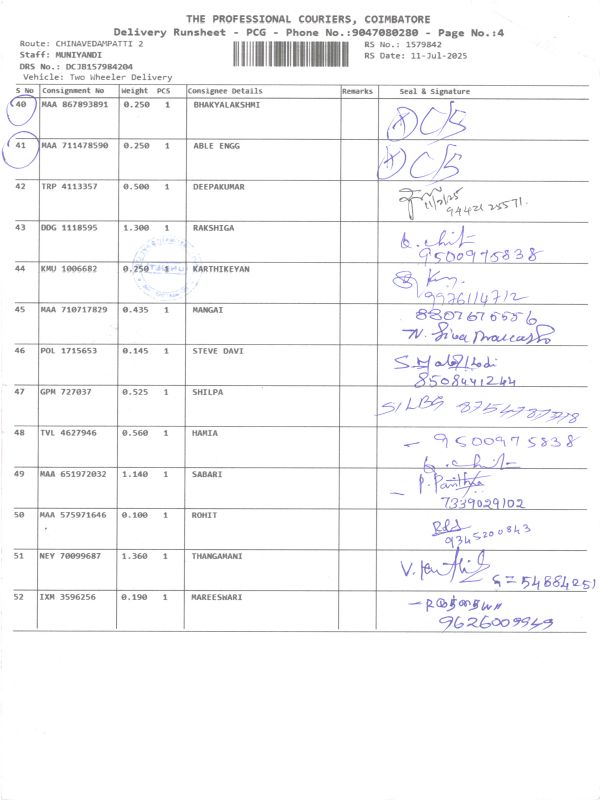 THE PROFESSIONAL COURIERS, COIMBATORE
Delivery Runsheet - PCG - Phone No.:9047080280 - Page No.:4
Route: CHINAVEDAMPATTI 2 RS No.: 1579842
Staff: MUNIYANDI RS Date: 11-Jul-2025
DRS No.: DCJB157984204
Vehicle: Two Wheeler Delivery
S No Consignment No Weight PCS Consignee Details Remarks Seal & Signature
40 MAA 867893891 0.250 1 BHAKYALAKSHMI C/S
41 MAA 711478590 0.250 1 ABLE ENGG C/S
42 TRP 4113357 0.500 1 DEEPAKUMAR
11/7/25
9442125571.
43 DDG 1118595 1.300 1 RAKSHIGA
9500975838
44 KMU 1006682 0.250 1 KARTHIKEYAN
9976114712
45 MAA 710717829 0.435 1 MANGAI 8807676556
46 POL 1715653 0.145 1 STEVE DAVI
8508441244
47 GPM 727037 0.525 1 SHILPA
SILBG
48 TVL 4627946 0.560 1 HAMIA - 9500975838
49 MAA 651972032 1.140 1 SABARI
7339029102
50 MAA 575971646 0.100 1 ROHIT
9345200843
51 NEY 70099687 1.360 1 THANGAMANI
52 IXM 3596256 0.190 1 MAREESWARI
9626009949